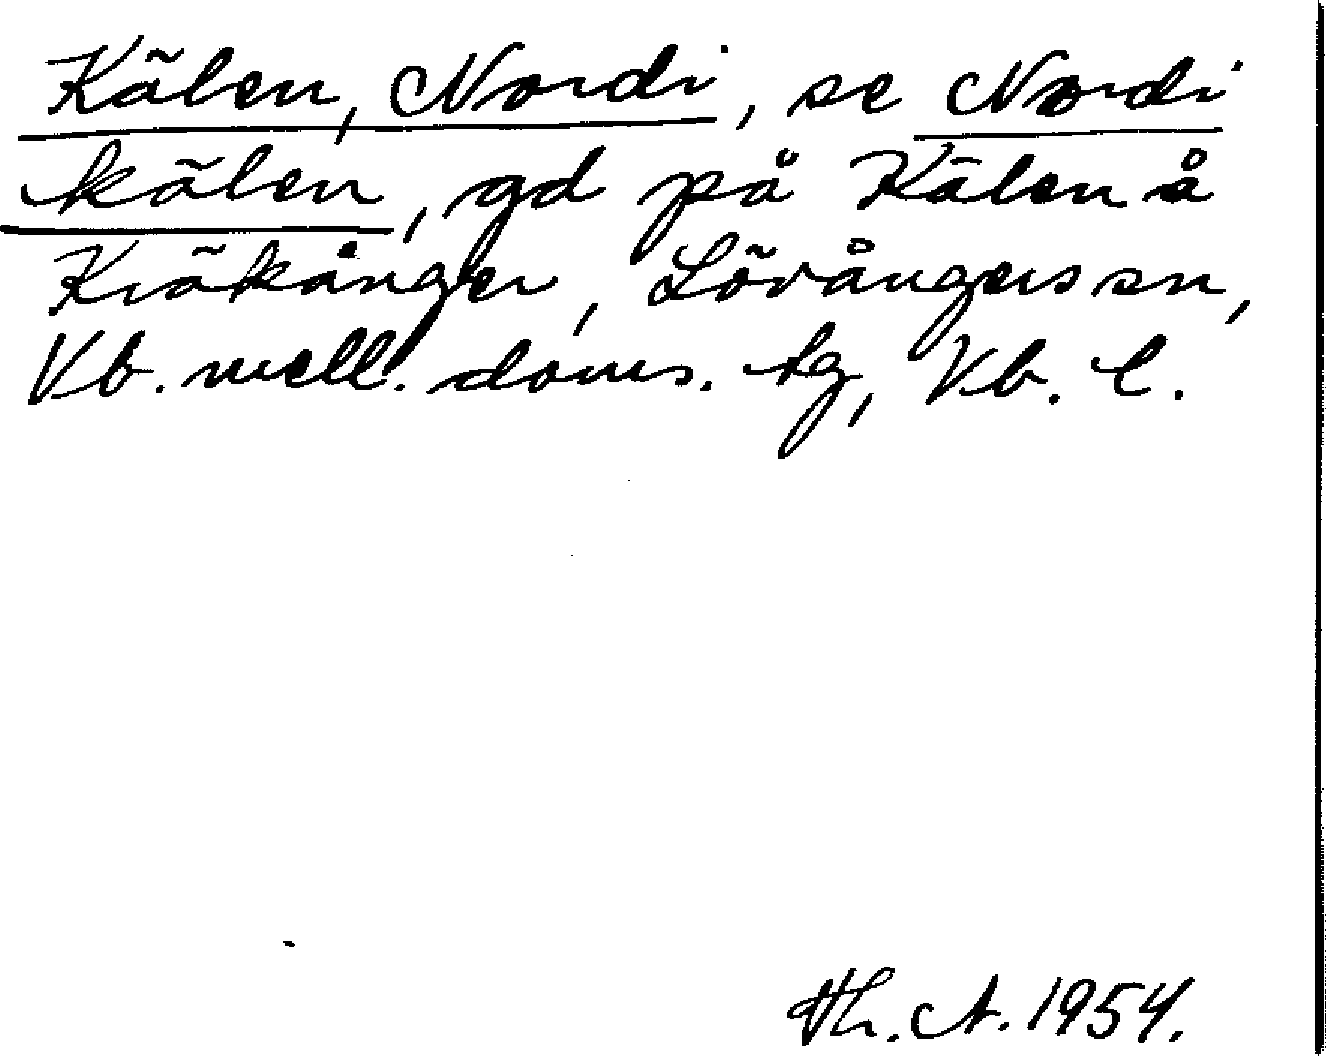 Kälen, Nordi, se Nordi
kälen, gd på Kälen å
Kräkånger, Lövångers sn,
Vb. mell. doms. tg, Vb. l.
Th. A. 1954.